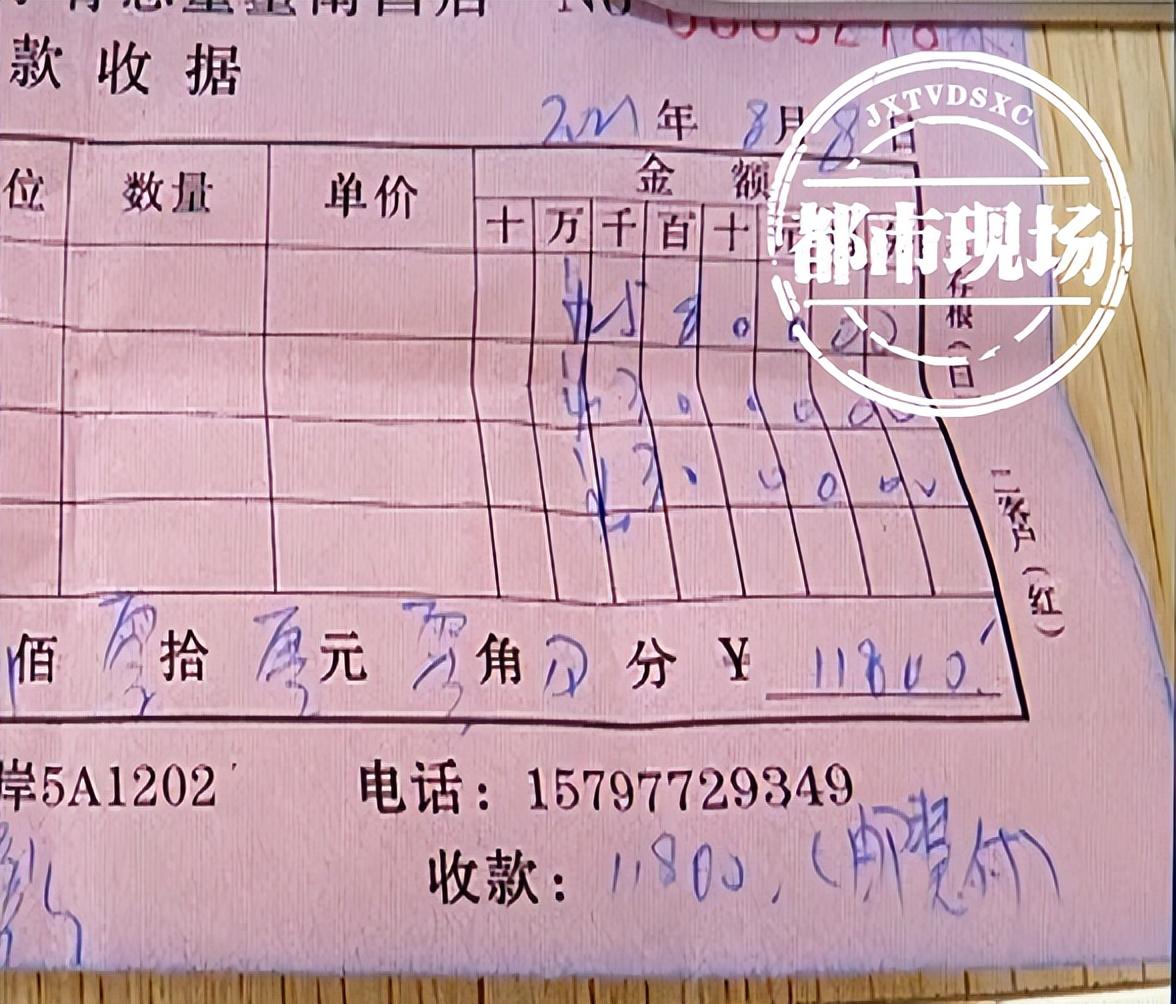 款收据
2021年8月8日
JXTVDSXC
都市现场
位 数量 单价 金额
十 万 千 百 十 元
5 8 0 0 0 0
3 0 0 0 0 0
3 0 0 0 0 0
存根（白
二客户（红）
佰 零 拾 零 元 零 角 分 ¥ 11800
岸5A1202 电话：15797729349
收款：11800